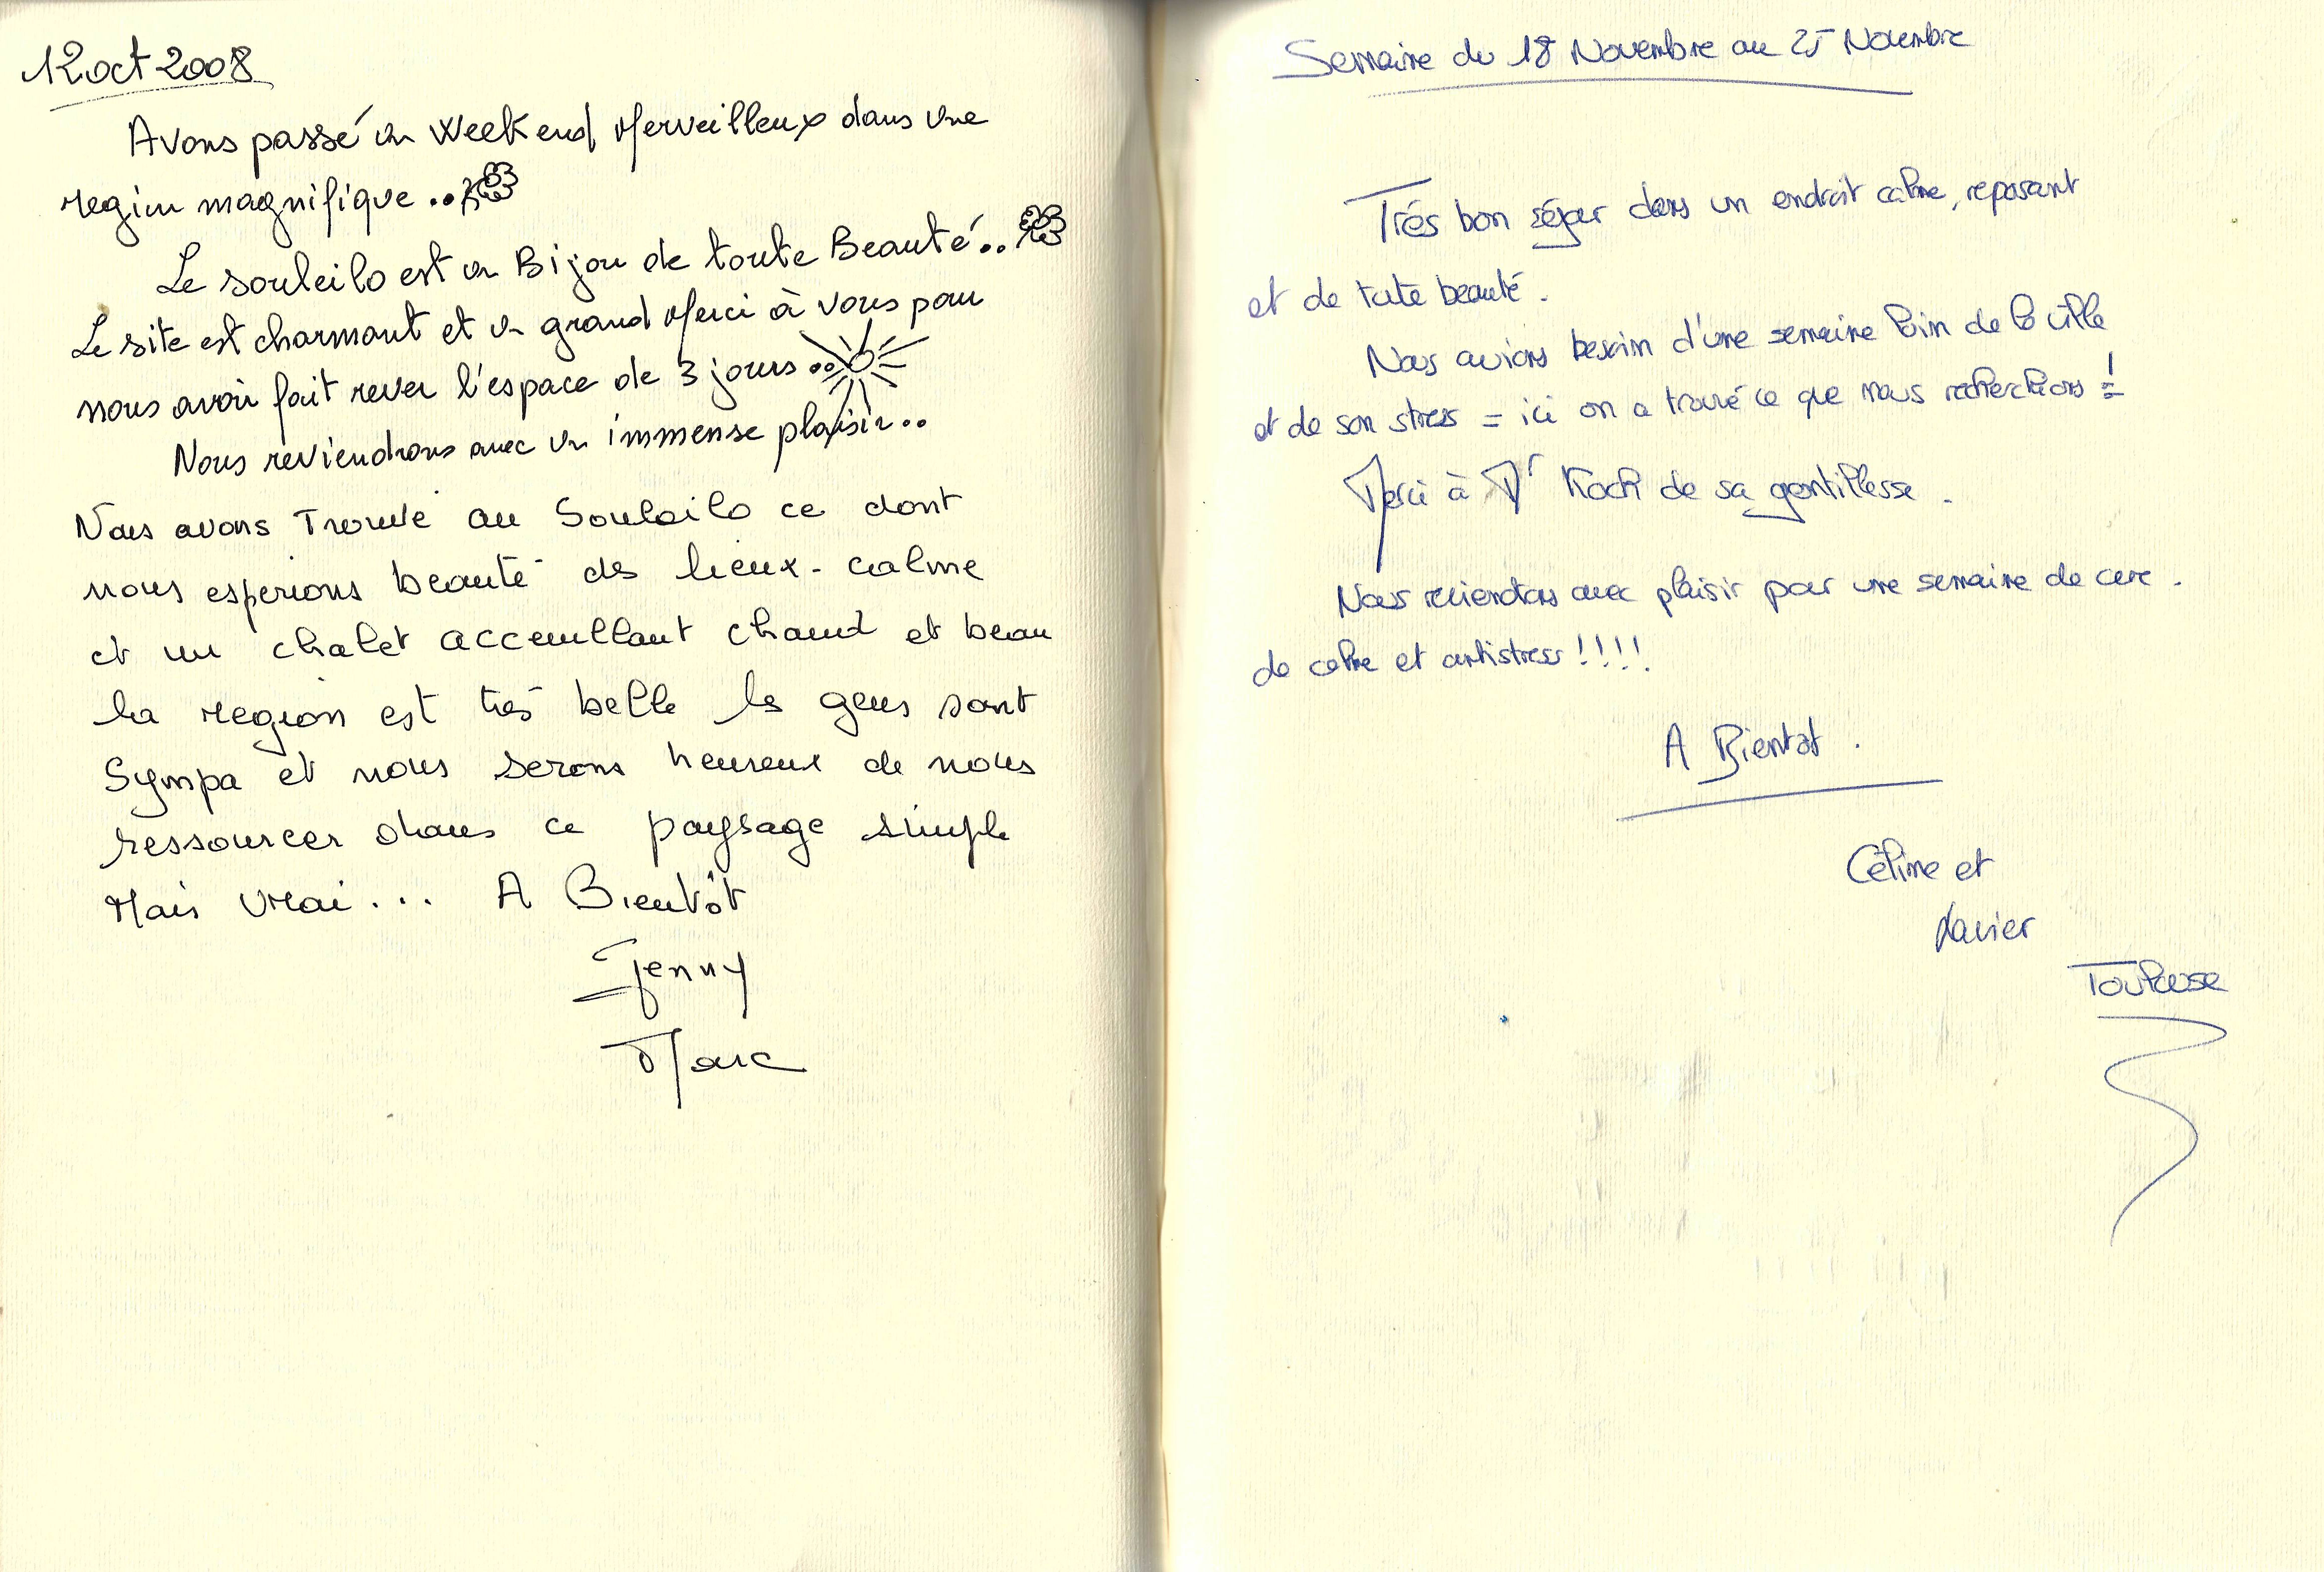 12 oct 2008
Avons passé un Week end Merveilleux dans une
region magnifique ..
Le souleilo est un Bijou de toute Beauté ..
Le site est charmant et un grand Merci à vous pour
nous avoir fait rever l'espace de 3 jours ..
Nous reviendrons avec un immense plaisir ..
Nous avons Trouvé au Souleilo ce dont
nous esperions beauté des lieux - calme
et un chalet acceuillant chaud et beau
la region est très belle les gens sont
Sympa et nous serons heureux de nous
ressourcer dans ce paysage simple
Mais vrai ... A Bientôt
Jenny
Marc
Semaine du 18 Novembre au 25 Novembre
Trés bon séjour dans un endroit calme, reposant
et de toute beauté.
Nous avions besoin d'une semaine loin de la ville
et de son stress = ici on a trouvé ce que nous recherchions !
Merci à Mr Koch de sa gentillesse.
Nous reviendrons avec plaisir pour une semaine de cure
de calme et antistress !!!!
A Bientot.
Céline et
Xavier
Toulouse